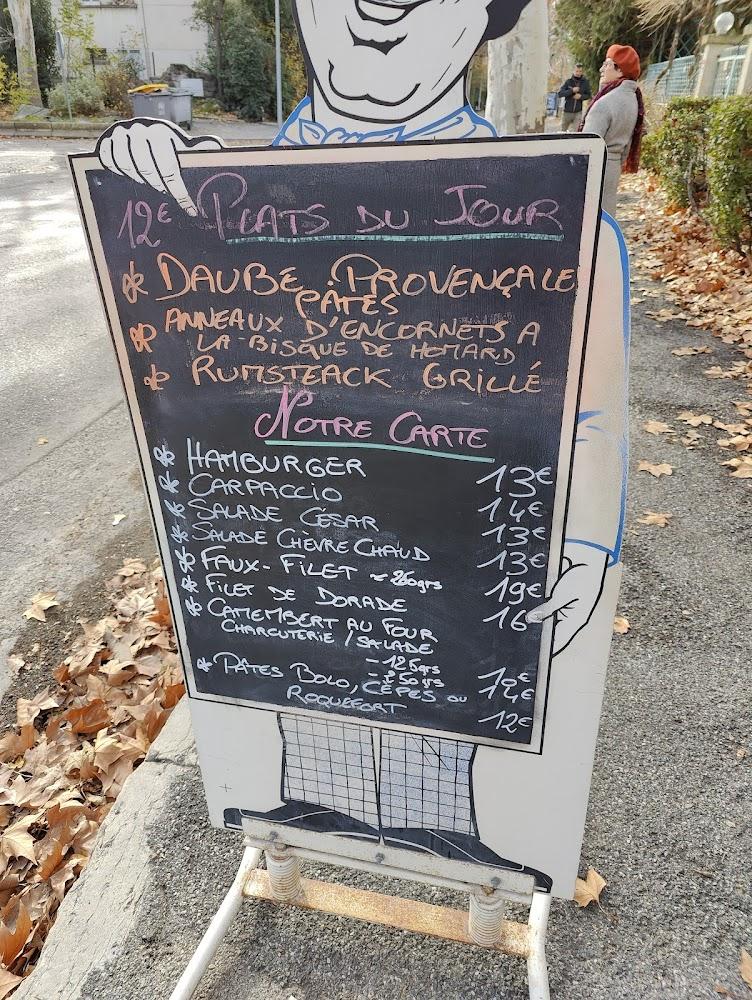 12€ Plats du Jour
* Daube Provençale
Pâtes
* Anneaux d'encornets a
la bisque de homard
* Rumsteack Grillé
Notre Carte
* Hamburger 13€
* Carpaccio 14€
* Salade César 13€
* Salade Chèvre Chaud 13€
* Faux-Filet ~ 260grs 19€
* Filet de Dorade 16
* Camembert au Four
Charcuterie / Salade
- 125grs
- 250grs
* Pâtes Bolo, Cèpes ou
Roquefort 12€